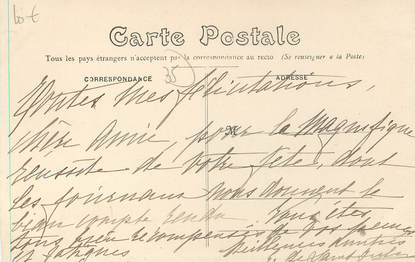 Lot
Carte Postale
Tous les pays étrangers n'acceptent pas la correspondance au recto (Se renseigner à la Poste)
35
CORRESPONDANCE ADRESSE
Toutes mes félicitations,
chère amie, pour la magnifique
M
réussite de votre fête, dont
les journaux nous donnent le
bien compte rendu Vous êtes
tous bien récompensés de vos peines
et fatigues Meilleures amitiés
de